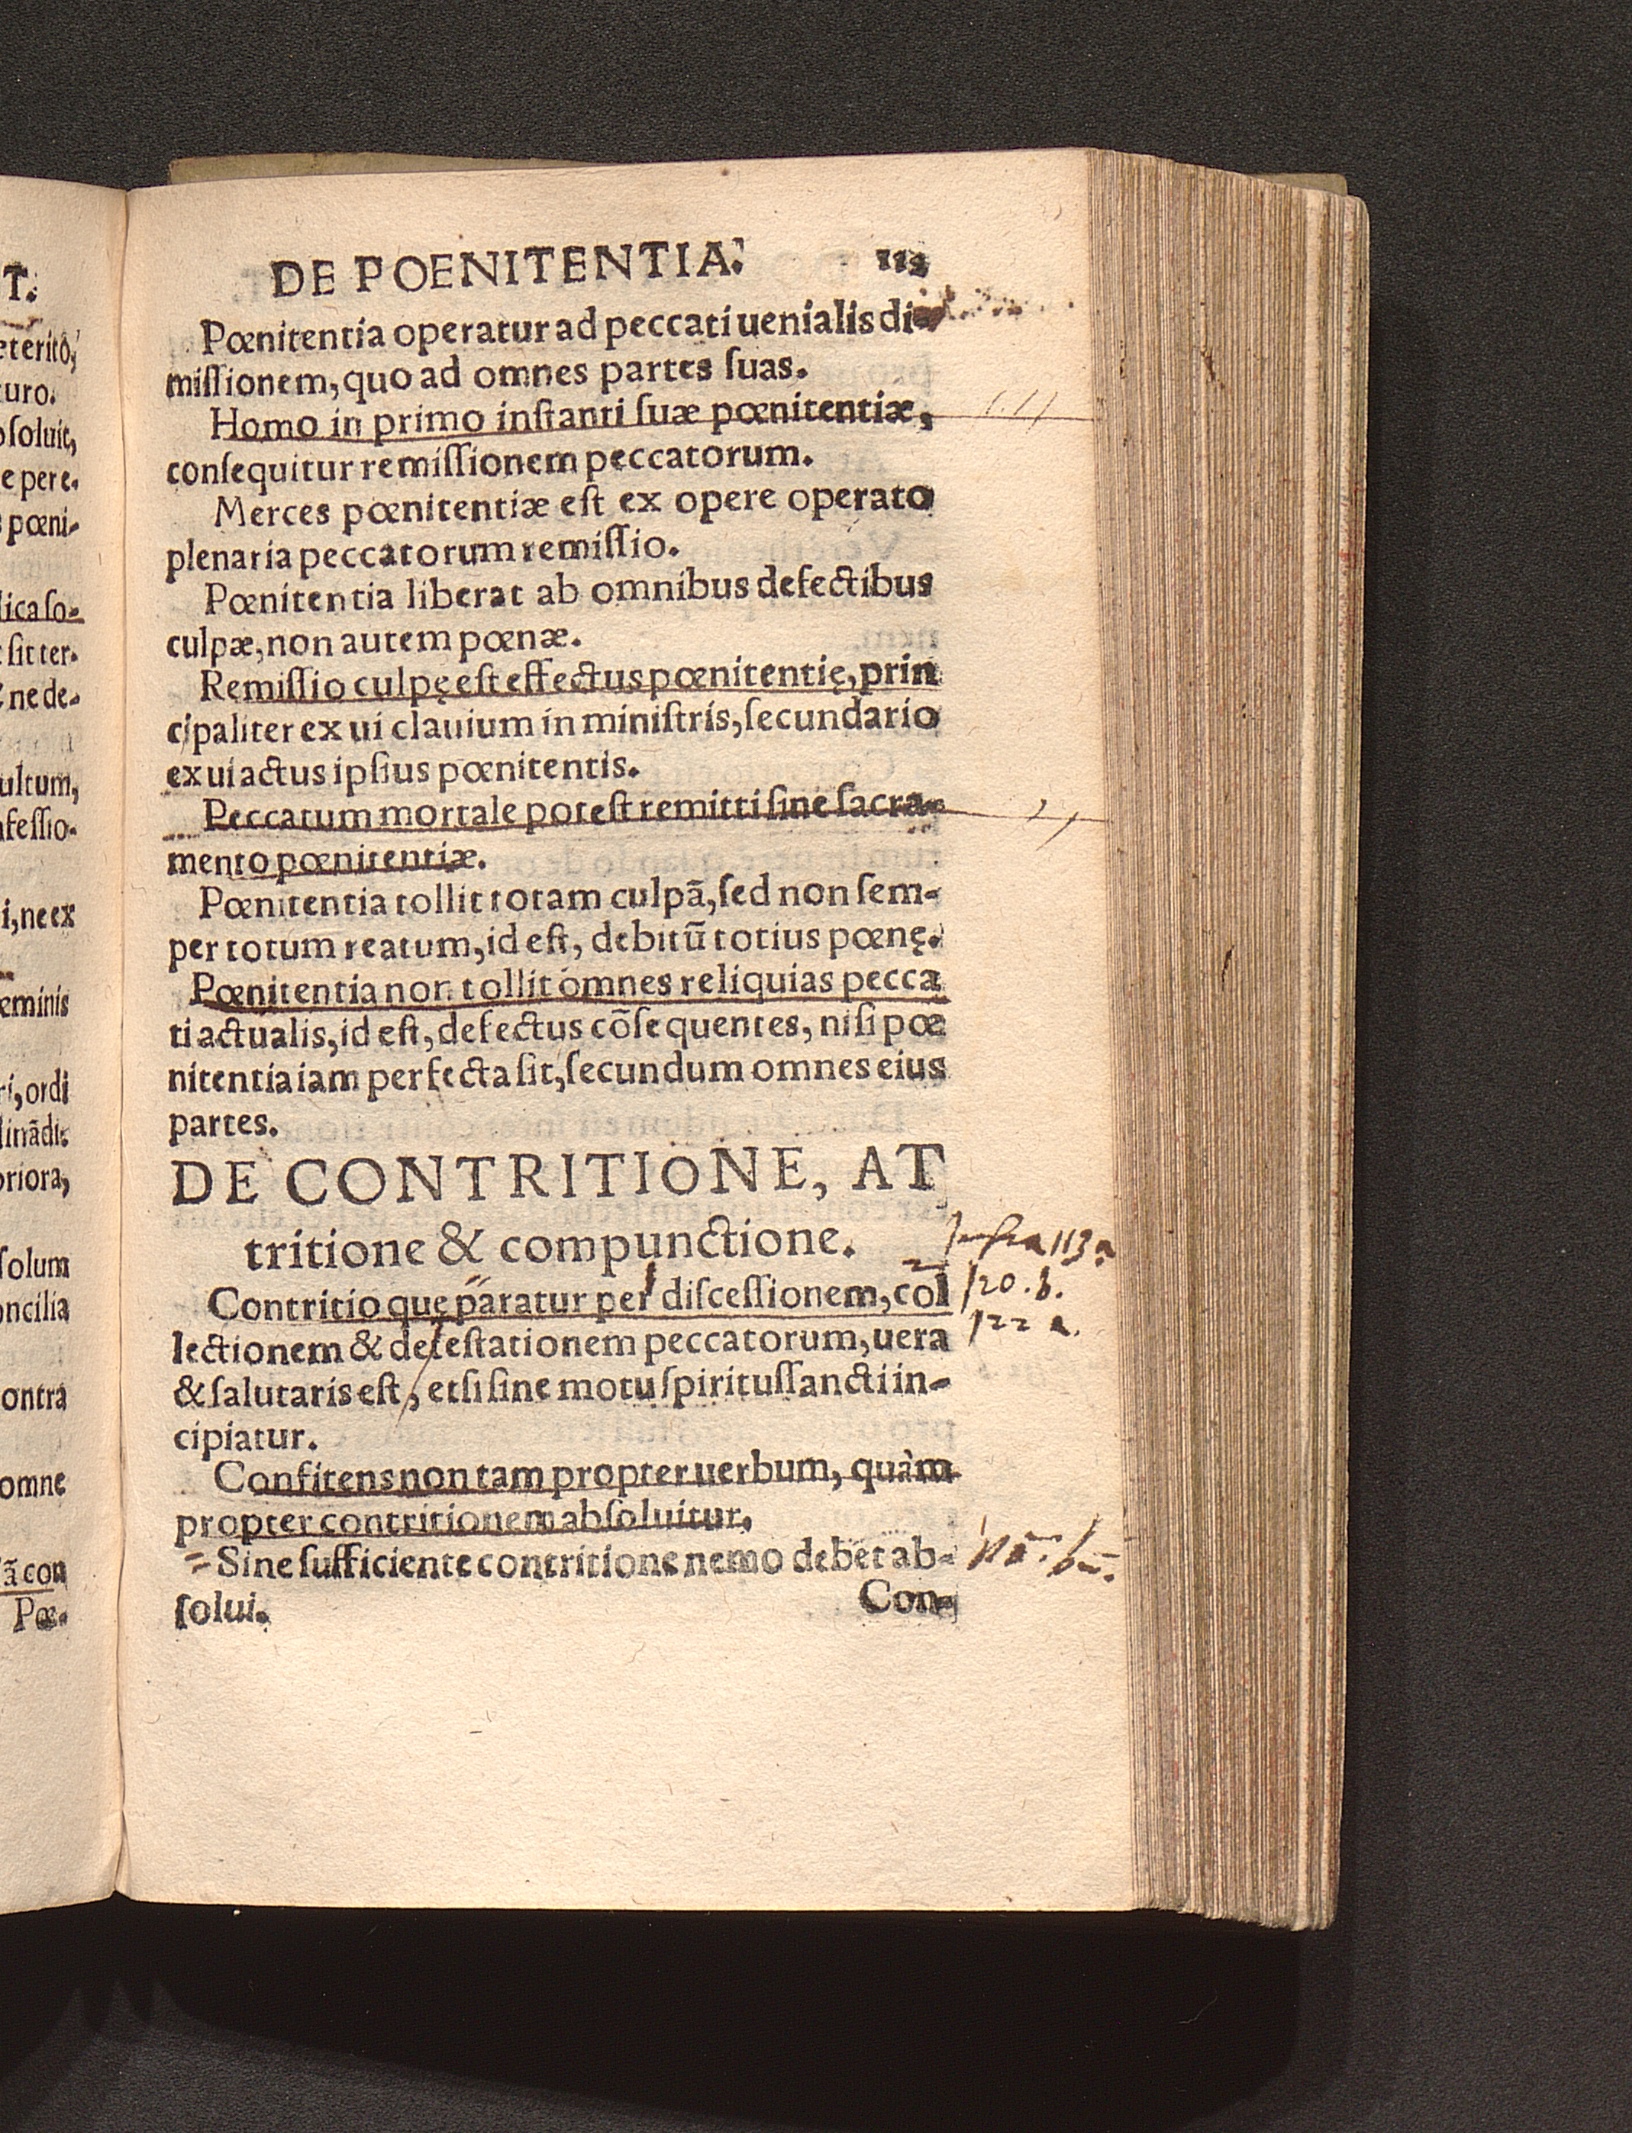 T.
eterito,
turo.
bsoluit,
e per e-
s pœni-
lica so-
sit ter.
ne de-
ultum,
nfessio-
i, ne ex
eminis
ri, ordi
priora,
solum
oncilia
ontra
omne
ã con
Pœ-
DE POENITENTIA.
Pœnitentia operatur ad peccati uenialis di-
missionem, quo ad omnes partes suas.
Homo in primo instanti suæ pœnitentiæ,
consequitur remissionem peccatorum.
Merces pœnitentiæ est ex opere operato
plenaria peccatorum remissio.
Pœnitentia liberat ab omnibus defectibus
culpæ, non autem pœnæ.
Remissio culpę est effectus pœnitentię, prin
cipaliter ex ui clauium in ministris, secundario
ex ui actus ipsius pœnitentis.
Peccatum mortale potest remitti sine sacra-
mento pœnitentiæ.
Pœnitentia tollit totam culpã, sed non sem-
per totum reatum, id est, debitũ totius pœnę.
Pœnitentia non tollit omnes reliquias pecca
ti actualis, id est, defectus cõsequentes, nisi pœ
nitentia iam perfecta sit, secundum omnes eius
partes.
DE CONTRITIONE, AT
tritione & compunctione.
Infra 113 a
Contritio quę paratur per discessionem, col
120. b.
122 a.
lectionem & detestationem peccatorum, uera
& salutaris est, etsi sine motu spiritussancti in-
cipiatur.
Confitens non tam propter uerbum, quàm
propter contritionem absoluitur.
Sine sufficiente contritione nemo debet ab-
solui.
Con-